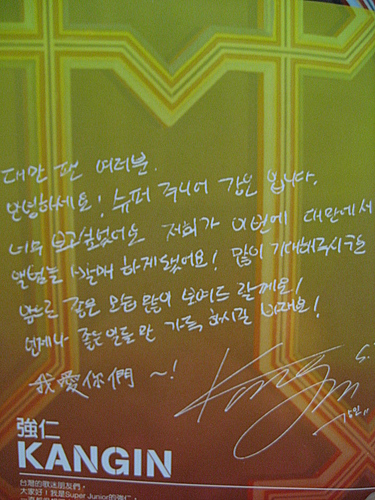 대만 팬 여러분.
안녕하세요! 슈퍼 주니어 강인 입니다.
너무 보고싶었어요 저희가 이번에 대만에서
앨범을 발매 하게됐어요! 많이 기대해주시구요
앞으로 좋은 모습 많이 보여드릴게요!
언제나 좋은 일들만 가득 하시길 바래요!
我愛你們 ~!
Kangin
강인"
強仁
KANGIN
台灣的歌迷朋友們,
大家好!我是Super Junior的強仁,